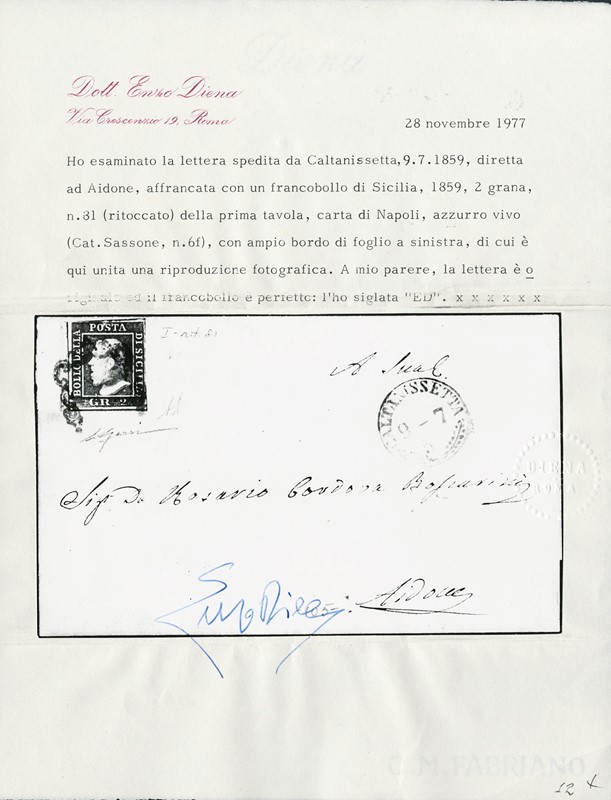 Diena
Dott. Enzo Diena
Via Crescenzio 19, Roma
28 novembre 1977
Ho esaminato la lettera spedita da Caltanissetta,9.7.1859, diretta
ad Aidone, affrancata con un francobollo di Sicilia, 1859, 2 grana,
n.81 (ritoccato) della prima tavola, carta di Napoli, azzurro vivo
(Cat.Sassone, n.6f), con ampio bordo di foglio a sinistra, di cui è
qui unita una riproduzione fotografica. A mio parere, la lettera è o
riginale ed il francobollo è perfetto: l'ho siglata "ED". x x x x x x
BOLLO DELLA
POSTA
DI SICILIA
GR. 2
A
CALTANISSETTA
9 - 7
DIENA
ROMA
Sig. Dn Rosario Cordova
Aidone
C.M.FABRIANO
12